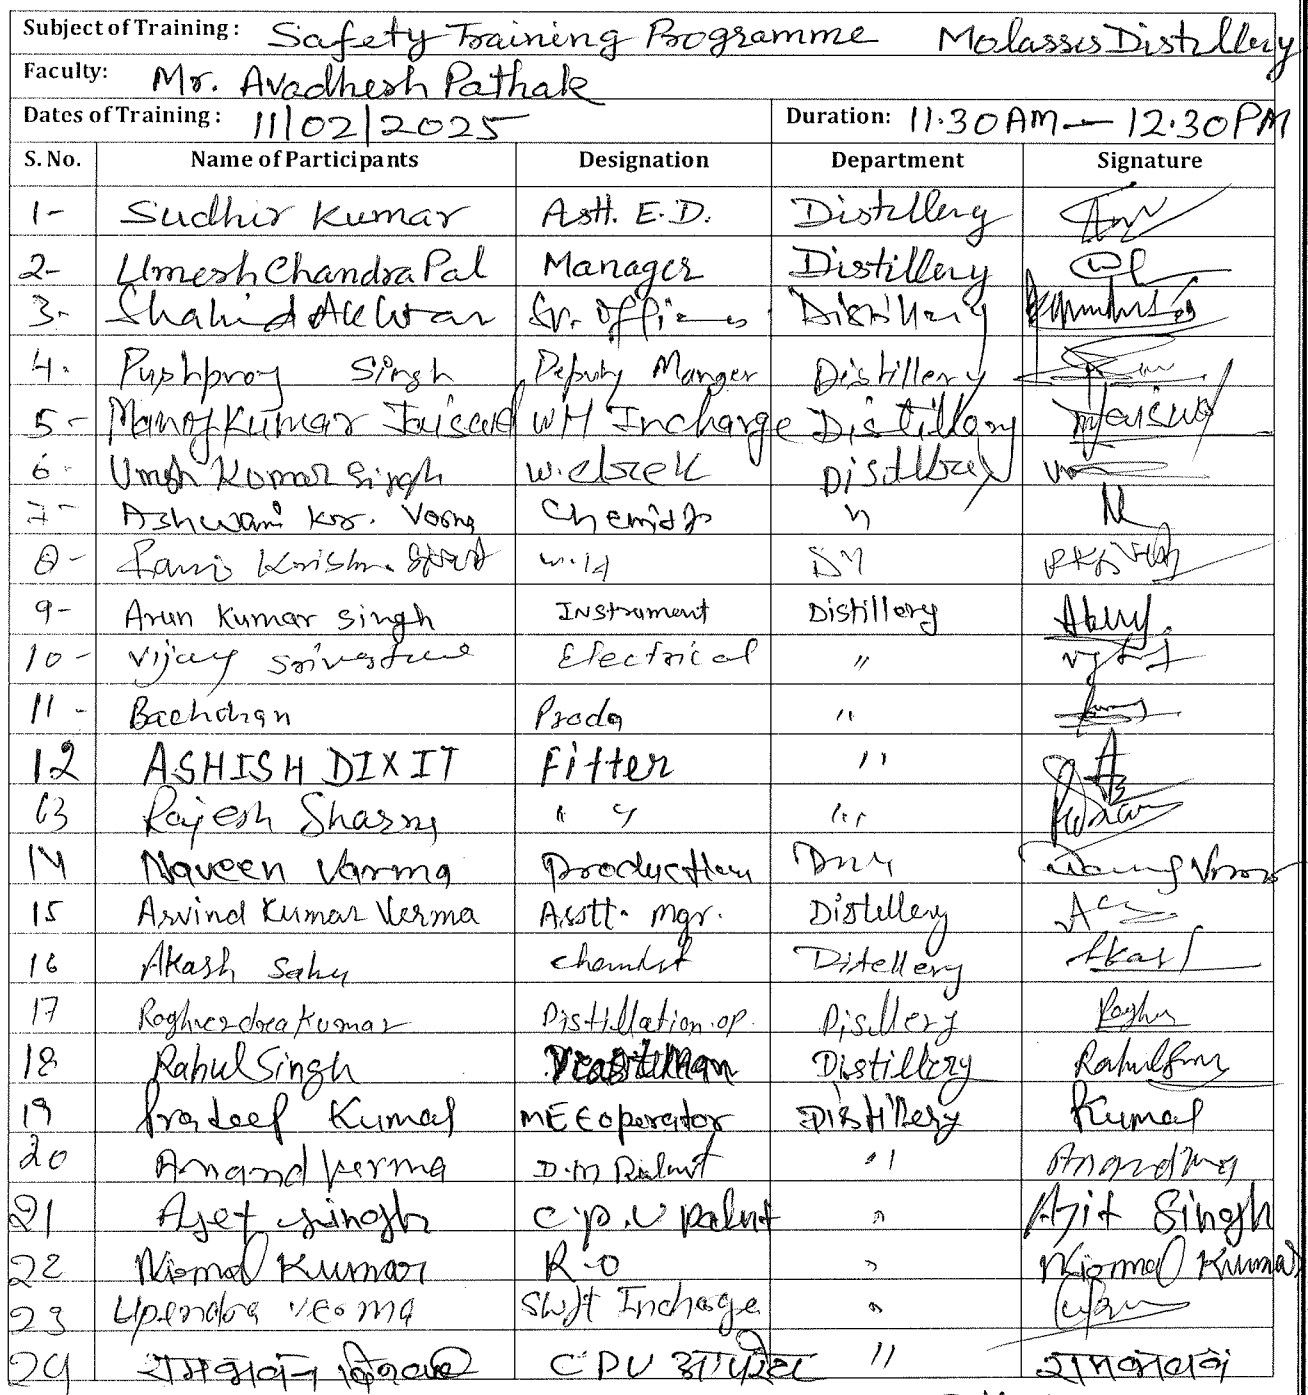 Subject of Training: Safety Training Programme Molasses Distillery
Faculty: Mr. Avadhesh Pathak
Dates of Training: 11/02/2025 Duration: 11.30 AM — 12.30 PM
S. No. Name of Participants Designation Department Signature
1- Sudhir Kumar Astt. E.D. Distillery
2- Umesh Chandra Pal Manager Distillery
3- Shahid Akhtar Sr. Officer Distillery
4. Pushpraj Singh Deputy Manger Distillery
5- Manoj Kumar Jaiswal WH Incharge Distillery Mjaiswal
6- Umesh Kumar Singh Distillery
7- Ashwani kr. Verma Chemist "
8- Krishna
9- Arun Kumar Singh Instrument Distillery
10- Vijay Srivastava Electrical "
11- Bachchan Prodn "
12 ASHISH DIXIT Fitter "
13 Rajesh Sharma " " "
14 Naveen Varma Production
15 Arvind Kumar Verma Asstt. mgr. Distillery
16 Akash Sahu Chemist Ditellery Akash
17 Raghvendra Kumar Distillation op. Disllery Raghu
18 Rahul Singh Distillery Rahul
19 Pradeep Kumar MEE operator Distillery Kumar
20 Anand Verma D.M "
21 Ajet Singh C.P.U Palnt " Ajit Singh
22 Nirmal Kumar R.O " Nirmal Kumar
23 Upendra Verma Shift Incharge "
24 रामभवन CPU आपरेटर " रामभवन